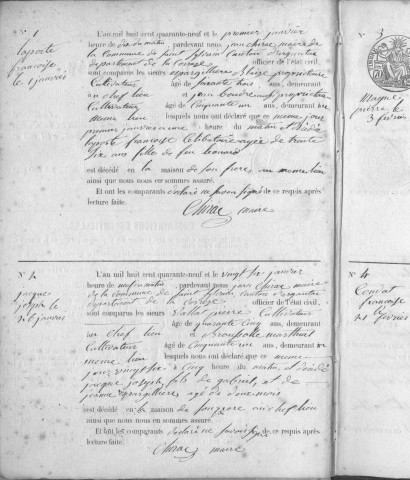 N° 1
laporte
françoise
le 1 janvier
L'an mil huit cent quarante-neuf et le premier janvier
heure de dix du matin, pardevant nous jean Chirac maire de
la Commune de Saint Sylvain Canton d'argentat
département de la Corrèze officier de l'état civil,
sont comparus les sieurs Espargilliere propriétaire
Cultivateur âgé de ans, demeurant
au chef lieu & jean propriétaire
Cultivateur âgé de Cinquante un ans, demeurant au
même lieu lesquels nous ont déclaré que ce même jour
premier heure du matin est décédé
laporte françoise Célibataire agée de trente
six ans fille de feu leonard
est décédé en la maison de son frere au même lieu
ainsi que nous nous en sommes assuré.
Et ont les comparants déclaré ne savoir signer de ce requis après
lecture faite.
Chirac maire
N° 2
jacque
joseph le
26 janvier
L'an mil huit cent quarante-neuf et le vingt six janvier
heure de neuf du matin, pardevant nous jean Chirac maire
de la Commune de Saint Sylvain Canton d'argentat
département de la Corrèze officier de l'état civil,
sont comparus les sieurs pierre Cultivateur
âgé de quarante Cinq ans, demeurant
au chef lieu & martial
Cultivateur âgé de Cinquante un ans, demeurant au
même lieu lesquels nous ont déclaré que ce même
jour vingt six à Cinq heure du matin est décédé
jacque joseph fils de gabriel, et de
jeanne Espargilliere, agé de deux mois
est décédé en la maison de son pere au chef lieu
ainsi que nous nous en sommes assuré.
Et ont les comparants déclaré ne savoir signer de ce requis après
lecture faite.
Chirac maire
N° 3
Magne
pierre le
3 février
N° 4
françoise
le
21 février